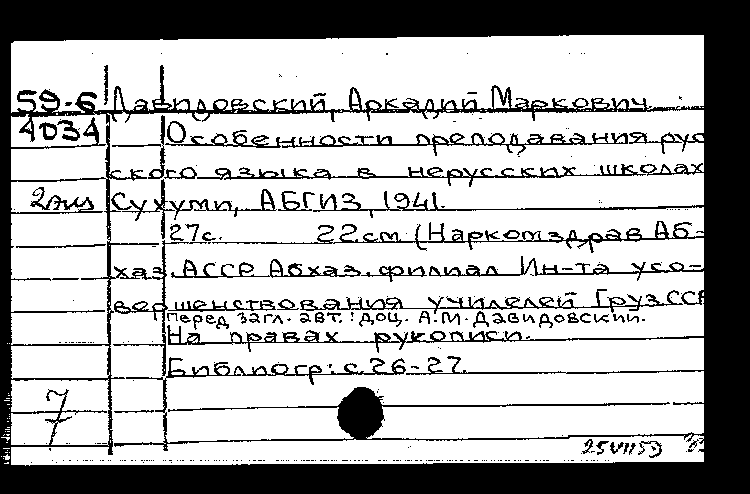 59-6 Давидовский, Аркадий Маркович
4034 Особенности преподавания рус
ского языка в нерусских школах
2 Сухуми, АБГИЗ, 1941.
27с. 22см (Наркомздрав Аб-
хаз. АССР Абхаз. филиал Ин-та усо-
вершенствования учителей Груз.ССР
Перед загл. авт.: доц. А.М. Давидовский.
На правах рукописи.
Библиогр: с. 26-27.
7
25VII59